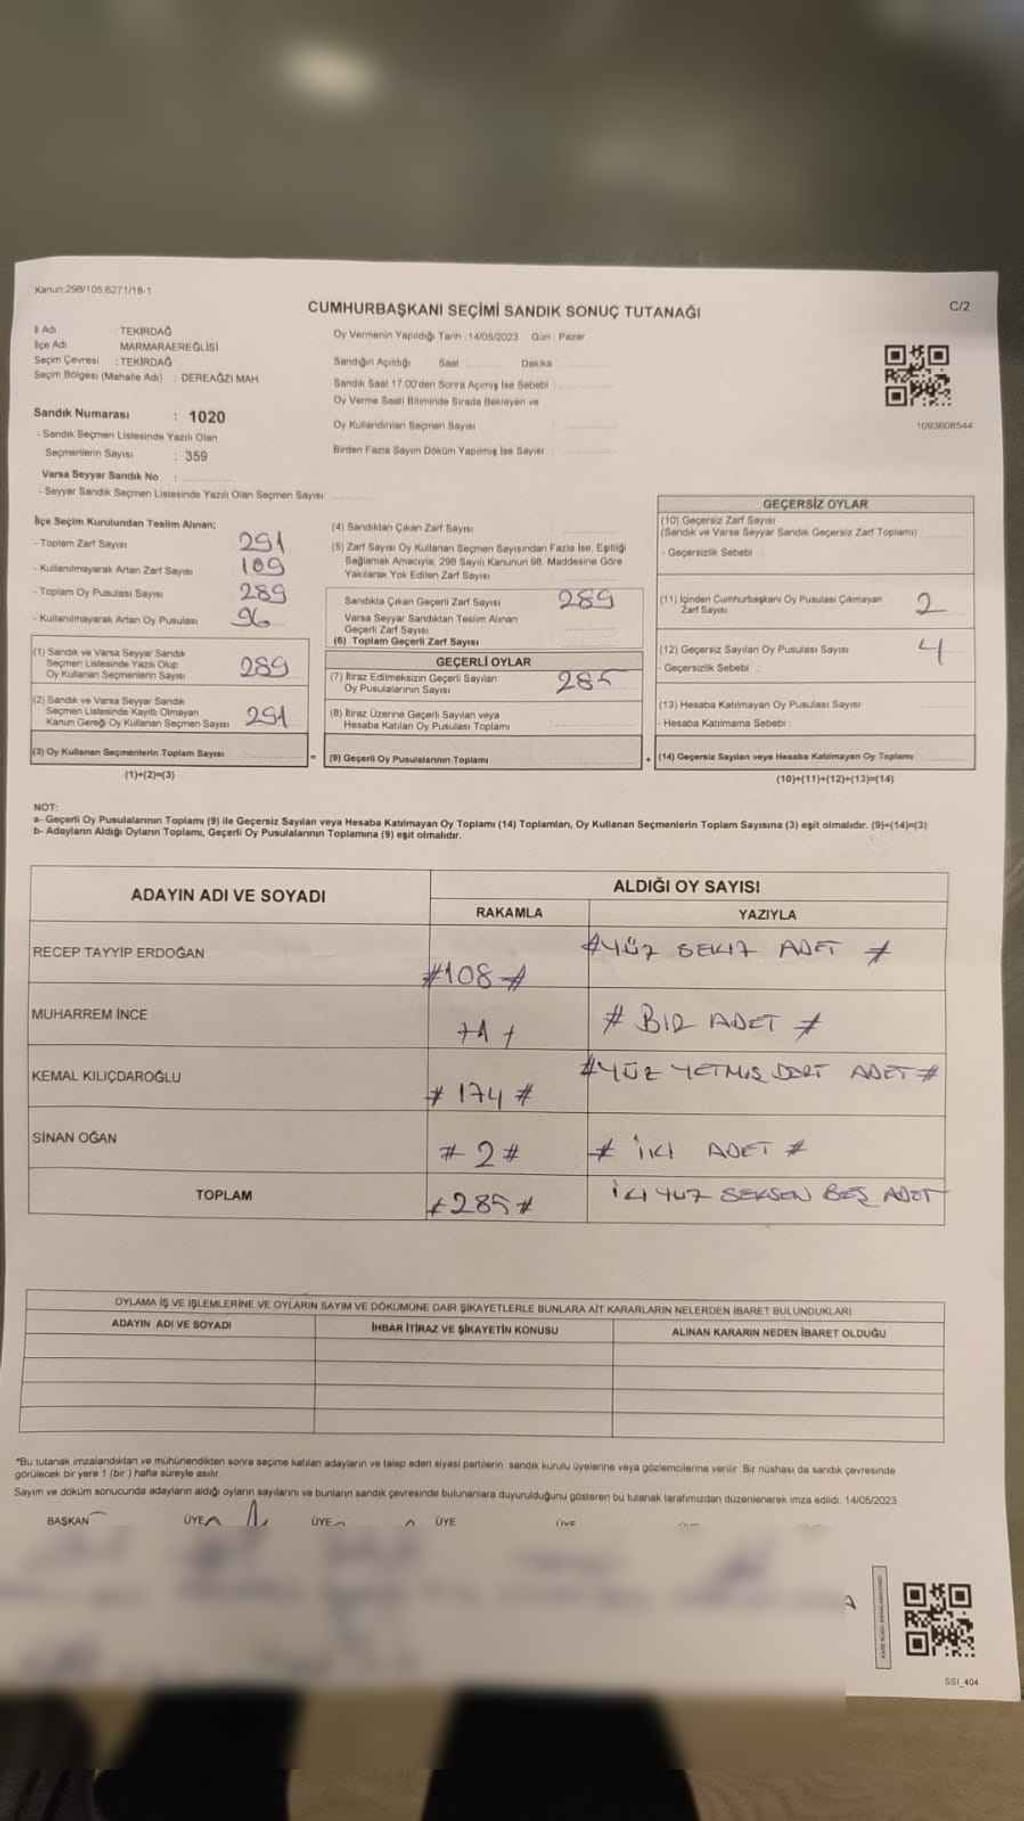 Kanun:298/105,6271/18-1
CUMHURBAŞKANI SEÇİMİ SANDIK SONUÇ TUTANAĞI
C/2
İl Adı : TEKİRDAĞ
İlçe Adı : MARMARAEREĞLİSİ
Seçim Çevresi : TEKİRDAĞ
Seçim Bölgesi (Mahalle Adı) : DEREAĞZI MAH
Oy Vermenin Yapıldığı Tarih :14/05/2023 Gün : Pazar
Sandığın Açıldığı Saat Dakika
Sandık Saat 17.00'den Sonra Açımış İse Sebebi
Oy Verme Saati Bitiminde Sırada Bekleyen ve
Oy Kullandırılan Seçmen Sayısı
Birden Fazla Sayım Döküm Yapılmış İse Sayısı :
1093608544
Sandık Numarası : 1020
- Sandık Seçmen Listesinde Yazılı Olan
Seçmenlerin Sayısı : 359
Varsa Seyyar Sandık No :
- Seyyar Sandık Seçmen Listesinde Yazılı Olan Seçmen Sayısı
İlçe Seçim Kurulundan Teslim Alınan;
- Toplam Zarf Sayısı 291
- Kullanılmayarak Artan Zarf Sayısı 109
- Toplam Oy Pusulası Sayısı 289
- Kullanılmayarak Artan Oy Pusulası 96
(1) Sandık ve Varsa Seyyar Sandık
Seçmen Listesinde Yazılı Olup
Oy Kullanan Seçmenlerin Sayısı 289
(2) Sandık ve Varsa Seyyar Sandık
Seçmen Listesinde Kayıtlı Olmayan
Kanun Gereği Oy Kullanan Seçmen Sayısı 291
(3) Oy Kullanan Seçmenlerin Toplam Sayısı
(1)+(2)=(3)
(4) Sandıktan Çıkan Zarf Sayısı
(5) Zarf Sayısı Oy Kullanan Seçmen Sayısından Fazla İse, Eşitliği
Sağlamak Amacıyla; 298 Sayılı Kanunun 98. Maddesine Göre
Yakılarak Yok Edilen Zarf Sayısı
Sandıkta Çıkan Geçerli Zarf Sayısı 289
Varsa Seyyar Sandıktan Teslim Alınan
Geçerli Zarf Sayısı
(6) Toplam Geçerli Zarf Sayısı
GEÇERLİ OYLAR
(7) İtiraz Edilmeksizin Geçerli Sayılan
Oy Pusulalarının Sayısı 285
(8) İtiraz Üzerine Geçerli Sayılan veya
Hesaba Katılan Oy Pusulası Toplamı
(9) Geçerli Oy Pusulalarının Toplamı
GEÇERSİZ OYLAR
(10) Geçersiz Zarf Sayısı
(Sandık ve Varsa Seyyar Sandık Geçersiz Zarf Toplamı)
- Geçersizlik Sebebi :
(11) İçinden Cumhurbaşkanı Oy Pusulası Çıkmayan
Zarf Sayısı 2
(12) Geçersiz Sayılan Oy Pusulası Sayısı 4
- Geçersizlik Sebebi :
(13) Hesaba Katılmayan Oy Pusulası Sayısı
- Hesaba Katılmama Sebebi :
(14) Geçersiz Sayılan veya Hesaba Katılmayan Oy Toplamı
(10)+(11)+(12)+(13)=(14)
NOT:
a- Geçerli Oy Pusulalarının Toplamı (9) ile Geçersiz Sayılan veya Hesaba Katılmayan Oy Toplamı (14) Toplamları, Oy Kullanan Seçmenlerin Toplam Sayısına (3) eşit olmalıdır. (9)+(14)=(3)
b- Adayların Aldığı Oyların Toplamı, Geçerli Oy Pusulalarının Toplamına (9) eşit olmalıdır.
ADAYIN ADI VE SOYADI ALDIĞI OY SAYISI
RAKAMLA YAZIYLA
RECEP TAYYİP ERDOĞAN #108# #YÜZ SEKİZ ADET #
MUHARREM İNCE #1# # BİR ADET #
KEMAL KILIÇDAROĞLU # 174 # #YÜZ YETMİŞ DÖRT ADET #
SİNAN OĞAN # 2 # # İKİ ADET #
TOPLAM #285# İKİ YÜZ SEKSEN BEŞ ADET
OYLAMA İŞ VE İŞLEMLERİNE VE OYLARIN SAYIM VE DÖKÜMÜNE DAİR ŞİKAYETLERLE BUNLARA AİT KARARLARIN NELERDEN İBARET BULUNDUKLARI
ADAYIN ADI VE SOYADI İHBAR İTİRAZ VE ŞİKAYETİN KONUSU ALINAN KARARIN NEDEN İBARET OLDUĞU
*Bu tutanak imzalandıktan ve mühürlendikten sonra seçime katılan adayların ve talep eden siyasi partilerin sandık kurulu üyelerine veya gözlemcilerine verilir. Bir nüshası da sandık çevresinde
görülecek bir yere 1 (bir) hafta süreyle asılır.
Sayım ve döküm sonucunda adayların aldığı oyların sayılarını ve bunların sandık çevresinde bulunanlara duyurulduğunu gösteren bu tutanak tarafımızdan düzenlenerek imza edildi. 14/05/2023
BAŞKAN ÜYE ÜYE ÜYE ÜYE
SSI_404